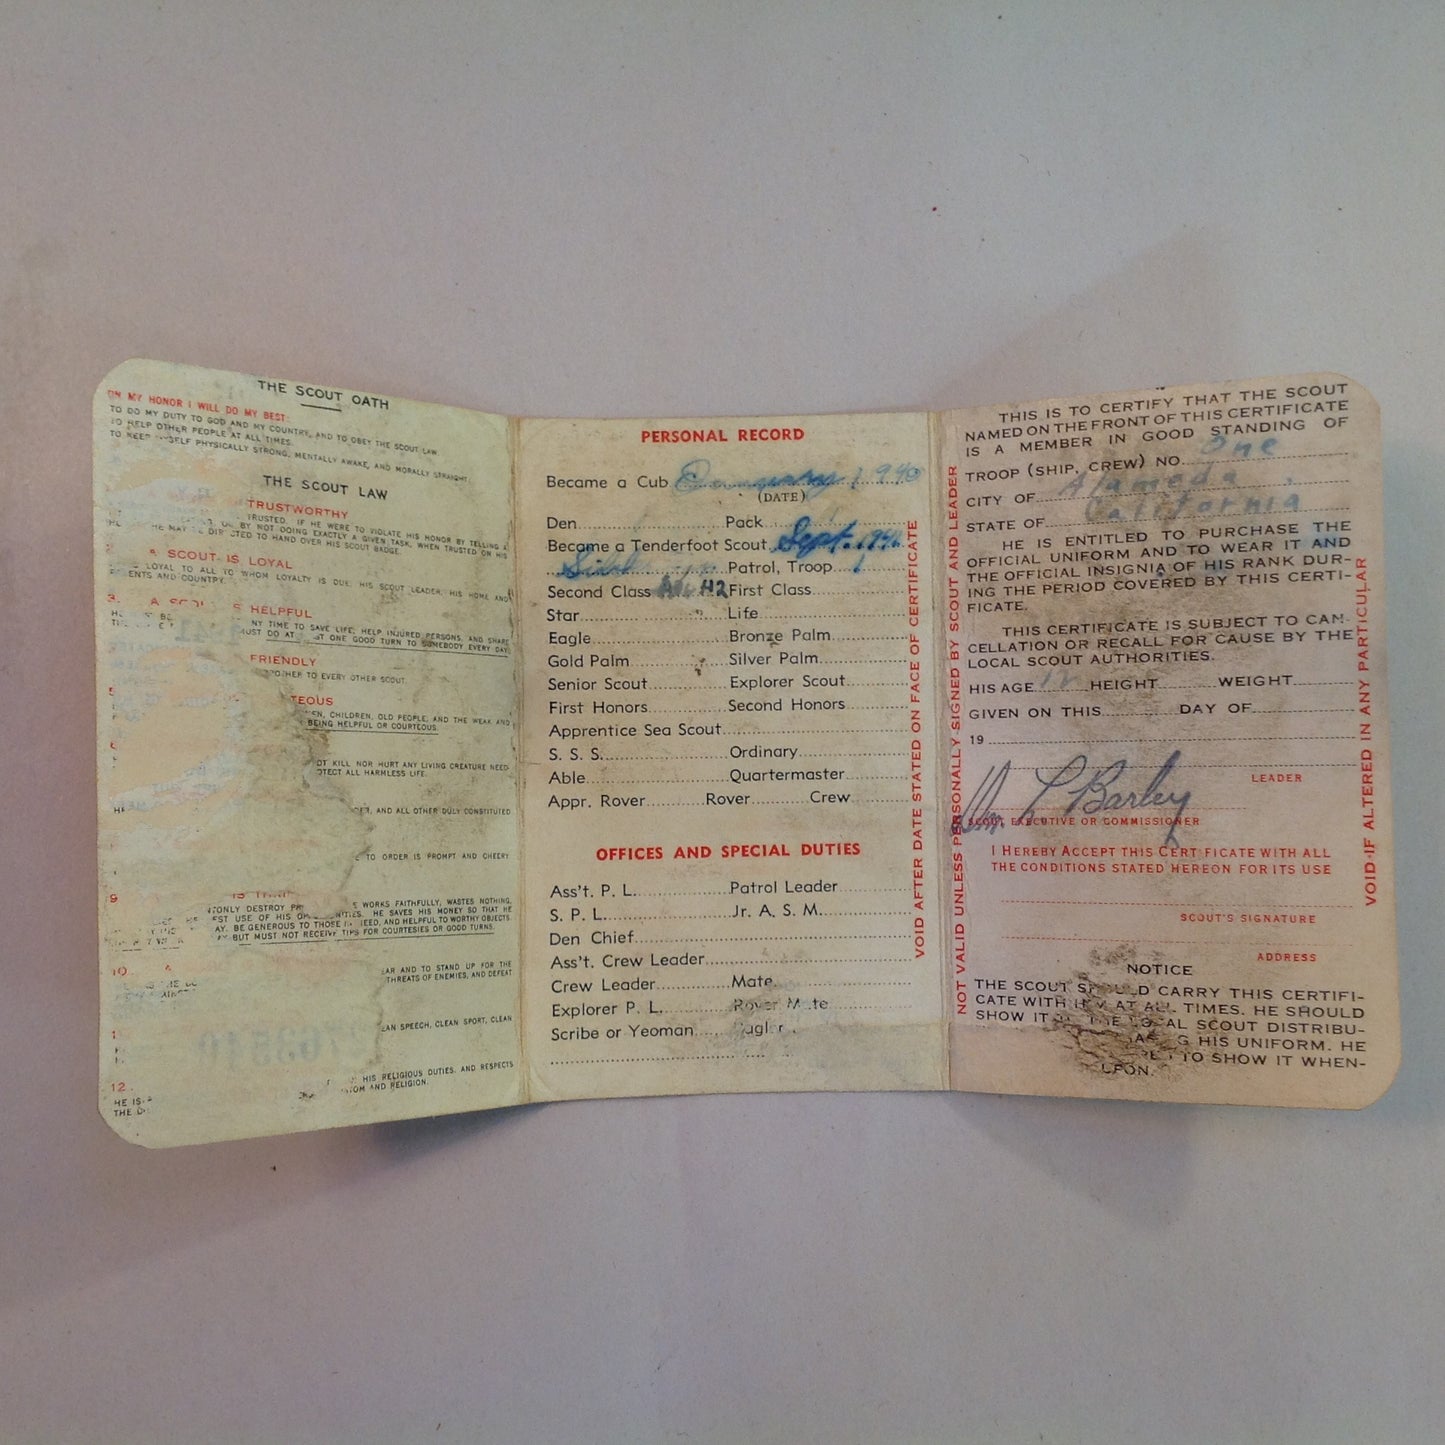 THE SCOUT OATH
ON MY HONOR I WILL DO MY BEST:
TO DO MY DUTY TO GOD AND MY COUNTRY, AND TO OBEY THE SCOUT LAW
TO HELP OTHER PEOPLE AT ALL TIMES.
TO KEEP SELF PHYSICALLY STRONG, MENTALLY AWAKE, AND MORALLY STRAIGHT
THE SCOUT LAW
TRUSTWORTHY
TRUSTED. IF HE WERE TO VIOLATE HIS HONOR BY TELLING A
BY NOT DOING EXACTLY A GIVEN TASK, WHEN TRUSTED ON HIS
HE MAY BE TO HAND OVER HIS SCOUT BADGE.
A SCOUT IS LOYAL
LOYAL TO ALL TO WHOM LOYALTY IS DUE, HIS SCOUT LEADER, HIS HOME AND
AND COUNTRY.
3. HELPFUL
NY TIME TO SAVE LIFE, HELP INJURED PERSONS, AND SHARE
MUST DO AT ONE GOOD TURN TO SOMEBODY EVERY DAY
FRIENDLY
TO EVERY OTHER SCOUT
TEOUS
EN, CHILDREN, OLD PEOPLE, AND THE WEAK AND
BEING HELPFUL OR COURTEOUS.
OT KILL NOR HURT ANY LIVING CREATURE NEED
OTECT ALL HARMLESS LIFE.
AND ALL OTHER DULY CONSTITUTED
TO ORDER IS PROMPT AND CHEERY
9
TONLY DESTROY WORKS FAITHFULLY, WASTES NOTHING,
EST USE OF HIS HE SAVES HIS MONEY SO THAT HE
AY, BE GENEROUS TO THOSE EED, AND HELPFUL TO WORTHY OBJECTS
BUT MUST NOT RECEIVE TIPS FOR COURTESIES OR GOOD TURNS.
10.
EAR AND TO STAND UP FOR THE
THREATS OF ENEMIES, AND DEFEAT
EAN SPEECH, CLEAN SPORT, CLEAN
12.
HE IS HIS RELIGIOUS DUTIES, AND RESPECTS
THE OM AND RELIGION.
PERSONAL RECORD
Became a Cub 1940
(DATE)
Den Pack
Became a Tenderfoot Scout Sept.
Patrol, Troop 1
Second Class First Class
Star Life
Eagle Bronze Palm
Gold Palm Silver Palm
Senior Scout Explorer Scout
First Honors Second Honors
Apprentice Sea Scout
S. S. S. Ordinary
Able Quartermaster
Appr. Rover Rover Crew
OFFICES AND SPECIAL DUTIES
Ass't. P. L. Patrol Leader
S. P. L. Jr. A. S. M.
Den Chief
Ass't. Crew Leader
Crew Leader Mate
Explorer P. L. Rover Mate
Scribe or Yeoman Bugler
VOID AFTER DATE STATED ON FACE OF CERTIFICATE
NOT VALID UNLESS PERSONALLY SIGNED BY SCOUT AND LEADER
THIS IS TO CERTIFY THAT THE SCOUT
NAMED ON THE FRONT OF THIS CERTIFICATE
IS A MEMBER IN GOOD STANDING OF
TROOP (SHIP, CREW) NO. One
CITY OF Alameda
STATE OF California
HE IS ENTITLED TO PURCHASE THE
OFFICIAL UNIFORM AND TO WEAR IT AND
THE OFFICIAL INSIGNIA OF HIS RANK DUR-
ING THE PERIOD COVERED BY THIS CERTI-
FICATE.
THIS CERTIFICATE IS SUBJECT TO CAN-
CELLATION OR RECALL FOR CAUSE BY THE
LOCAL SCOUT AUTHORITIES.
HIS AGE 12 HEIGHT WEIGHT
GIVEN ON THIS DAY OF
19
LEADER
Wm. L Barley
SCOUT EXECUTIVE OR COMMISSIONER
I HEREBY ACCEPT THIS CERTIFICATE WITH ALL
THE CONDITIONS STATED HEREON FOR ITS USE
SCOUT'S SIGNATURE
ADDRESS
NOTICE
THE SCOUT SHOULD CARRY THIS CERTIFI-
CATE WITH HIM AT ALL TIMES. HE SHOULD
SHOW IT THE LOCAL SCOUT DISTRIBU-
G HIS UNIFORM. HE
TO SHOW IT WHEN-
UPON.
VOID IF ALTERED IN ANY PARTICULAR